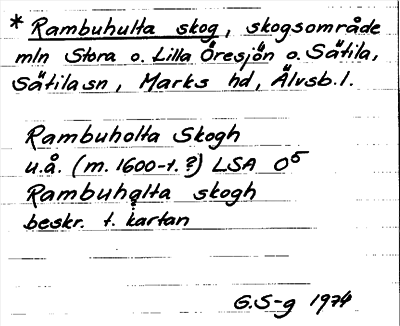 * Rambuhulta skog, skogsområde
mln Stora o. Lilla Öresjön o. Sätila,
Sätila sn, Marks hd, Älvsb. l.
Rambuholta Skogh
u.å. (m. 1600-t.?) LSA O5
Rambuhalta skogh
beskr. t. kartan
G.S-g 1974